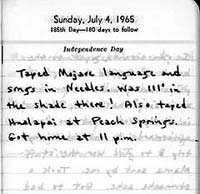 Sunday, July 4, 1965
185th Day—180 days to follow
Independence Day
Taped Mojave language and
songs in Needles. Was 111° in
the shade there! Also taped
Hualapai at Peach Springs.
Got home at 11 p.m.